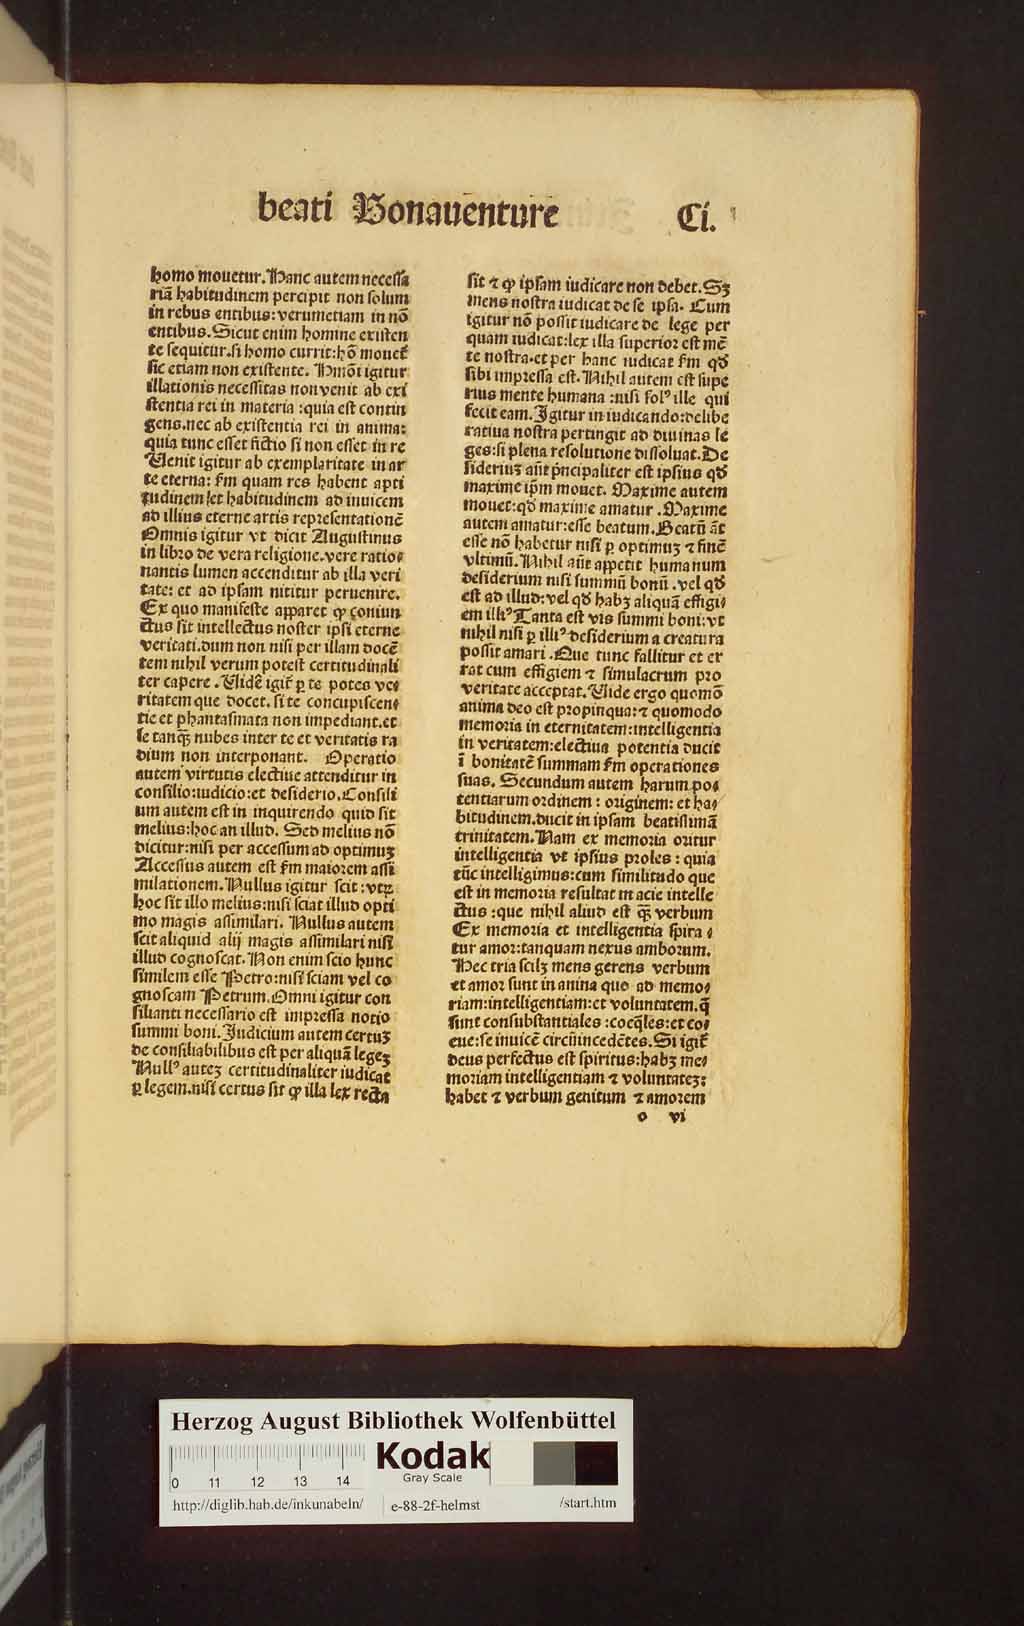 beati Bonauēture Ci.
homo mouetur. Hanc autem necessa
riā habitudinem percipit non solum
in rebus entibus: verumetiam in nō
entibus. Sicut enim homine existen
te sequitur. si homo currit: hō mouet᷑
sic etiam non existente. Hmōi igitur
illationis necessitas non venit ab exi
stentia rei in materia: quia est contin
gens. nec ab existentia rei in anima:
quia tunc esset fictio si non esset in re
Uenit igitur ab exemplaritate in ar
te eterna: ẜm quam res habent apti
tudinem et habitudinem ad inuicem
ad illius eterne artis representationē
Omnis igitur vt dicit Augustinus
in libro de vera religione. vere ratio⸗
nantis lumen accenditur ab illa veri
tate: et ad ipsam nititur peruenire.
Ex quo manifeste apparet ꝙ coniun
ctus sit intellectus noster ipsi eterne
veritati. dum non nisi per illam docē
tem nihil verum potest certitudinali
ter capere. Uidē igit᷑ ꝑ te potes ve⸗
ritatem que docet. si te concupiscen⸗
tie et phantasmata non impediant. et
se tanꝙ̄ nubes inter te et veritatis ra
dium non interponant. Operatio
autem virtutis electiue attenditur in
consilio: iudicio: et desiderio. Consili
um autem est in inquirendo quid sit
melius: hoc an illud. Sed melius nō
dicitur: nisi per accessum ad optimuȝ
Accessus autem est ẜm maiorem assi
milationem. Nullus igitur scit: vtꝝ
hoc sit illo melius: nisi sciat illud opti
mo magis assimilari. Nullus autem
scit aliquid alij magis assimilari nisi
illud cognoscat. Non enim scio hunc
similem esse Petro: nisi sciam vel co
gnoscam Petrum. Omni igitur con
silianti necessario est impressa notio
summi boni. Judicium autem certuȝ
de consiliabilibus est per aliquā legeȝ
Nullꝰ auteȝ certitudinaliter iudicat
ꝑ legem. nisi certus sit ꝙ illa lex recta
sit ⁊ ꝙ ipsam iudicare non debet. Sȝ
mens nostra iudicat de se ipsa. Cum
igitur nō possit iudicare de lege per
quam iudicat: lex illa superior est mē
te nostra. et per hanc iudicat ẜm qđ
sibi impressa est. Nihil autem est supe
rius mente humana: nisi solꝰ ille qui
fecit eam. Igitur in iudicando: delibe
ratiua nostra pertingit ad diuinas le
ges: si plena resolutione dissoluat. De
sideriuȝ aūt pͥncipaliter est ipsius qđ
maxime ipm̄ mouet. Maxime autem
mouet: qđ maxime amatur. Maxime
autem amatur: esse beatum. Beatū āt
esse nō habetur nisi ꝑ optimuȝ ⁊ finē
vltimū. Nihil aūt appetit humanum
desiderium nisi summū bonū. vel qđ
est ad illud: vel qđ habȝ aliquā effigi⸗
em illiꝰ Tanta est vis summi boni: vt
nihil nisi ꝑ illiꝰ desiderium a creatura
possit amari. Que tunc fallitur et er
rat cum effigiem ⁊ simulacrum pro
veritate acceptat. Uide ergo quomō
anima deo est propinqua: ⁊ quomodo
memoria in eternitatem: intelligentia
in veritatem: electiua potentia ducit
ī bonitatē summam ẜm operationes
suas. Secundum autem harum po⸗
tentiarum ordinem: originem: et ha⸗
bitudinem. ducit in ipsam beatissimā
trinitatem. Nam ex memoria oritur
intelligentia vt ipsius proles: quia
tūc intelligimus: cum similitudo que
est in memoria resultat in acie intelle
ctus: que nihil aliud est ꝙ̄ verbum
Ex memoria et intelligentia spira⸗
tur amor: tanquam nexus amborum.
Hec tria scilȝ mens gerens verbum
et amor sunt in anina quo ad memo⸗
riam: intelligentiam: et voluntatem. q̄
sunt consubstantiales: coeq̄les: et co⸗
eue: se inuicē circūincedētes. Si igit᷑
deus perfectus est spiritus: habȝ me⸗
moriam intelligentiam ⁊ voluntateȝ:
habet ⁊ verbum genitum ⁊ amorem
o vi
Herzog August Bibliothek Wolfenbüttel
0 11 12 13 14
Kodak
Gray Scale
http://diglib.hab.de/inkunabeln/ e-88-2f-helmst /start.htm